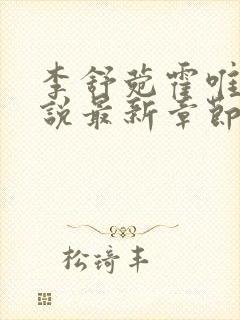 李舒菀霍唯
說最新章節
松琦丰